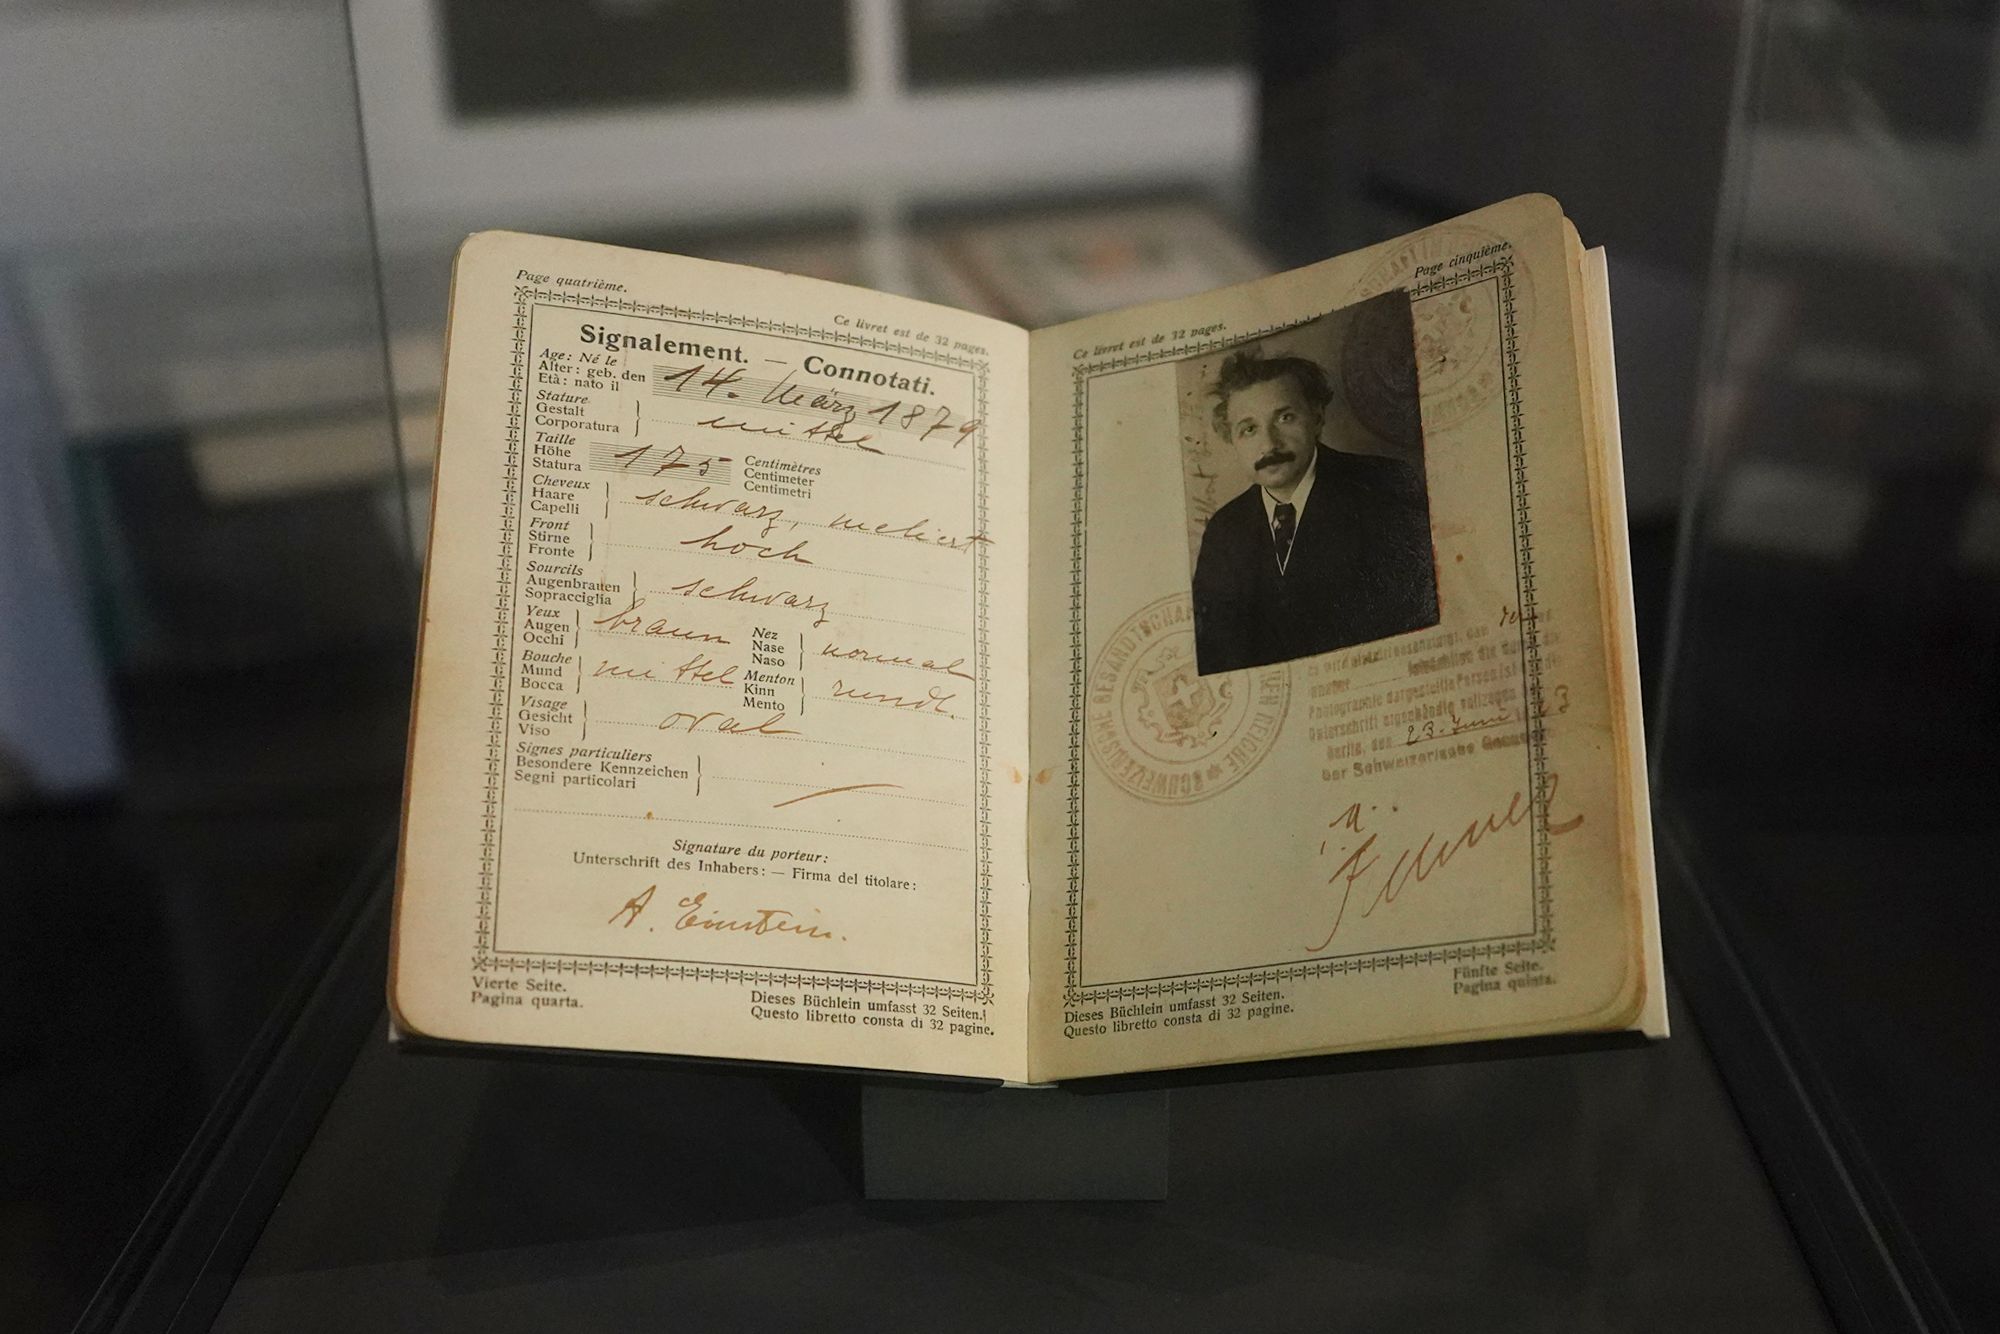 Page quatrième.
Ce livret est de 32 pages.
Signalement. — Connotati.
Age: Né le
Alter: geb. den
Età: nato il
14. März 1879
Stature
Gestalt
Corporatura
mittel
Taille
Höhe
Statura
175
Centimètres
Centimeter
Centimetri
Cheveux
Haare
Capelli
schwarz, meliert
Front
Stirne
Fronte
hoch
Sourcils
Augenbrauen
Sopracciglia
schwarz
Yeux
Augen
Occhi
braun
Nez
Nase
Naso
normal
Bouche
Mund
Bocca
mittel
Menton
Kinn
Mento
rund.
Visage
Gesicht
Viso
oval
Signes particuliers
Besondere Kennzeichen
Segni particolari
Signature du porteur:
Unterschrift des Inhabers: — Firma del titolare:
A. Einstein.
Vierte Seite.
Pagina quarta.
Dieses Büchlein umfasst 32 Seiten.
Questo libretto consta di 32 pagine.
Page cinquième.
Ce livret est de 32 pages.
Photographie dargestellte Person
Unterschrift eigenhändig vollzogen
Berlin, den 23. Juni
Der Schweizerische
Dieses Büchlein umfasst 32 Seiten.
Questo libretto consta di 32 pagine.
Fünfte Seite.
Pagina quinta.